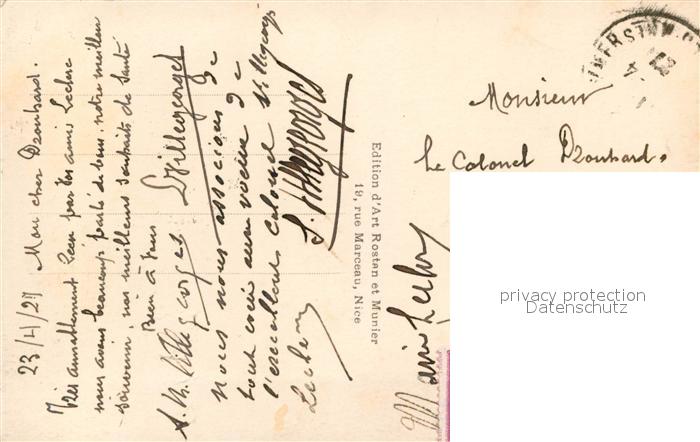 23/4/27 Mon cher Dzouhard.
Très aimablement reçu par vos amis Leclerc
nous avons beaucoup parlé de vous, notre meilleur
souvenir, nos meilleurs souhaits de santé
Bien à vous
S. M. Villegeorges L. Villegeorges
nous nous associons de
tout cœur aux vœux de
l'excellent Colonel St Villegeorges
Leclerc S. Villegeorges
Marie Leclerc
Edition d'Art Rostan et Munier
19, rue Marceau, Nice
Monsieur
Le Colonel Dzouhard.
privacy protection
Datenschutz